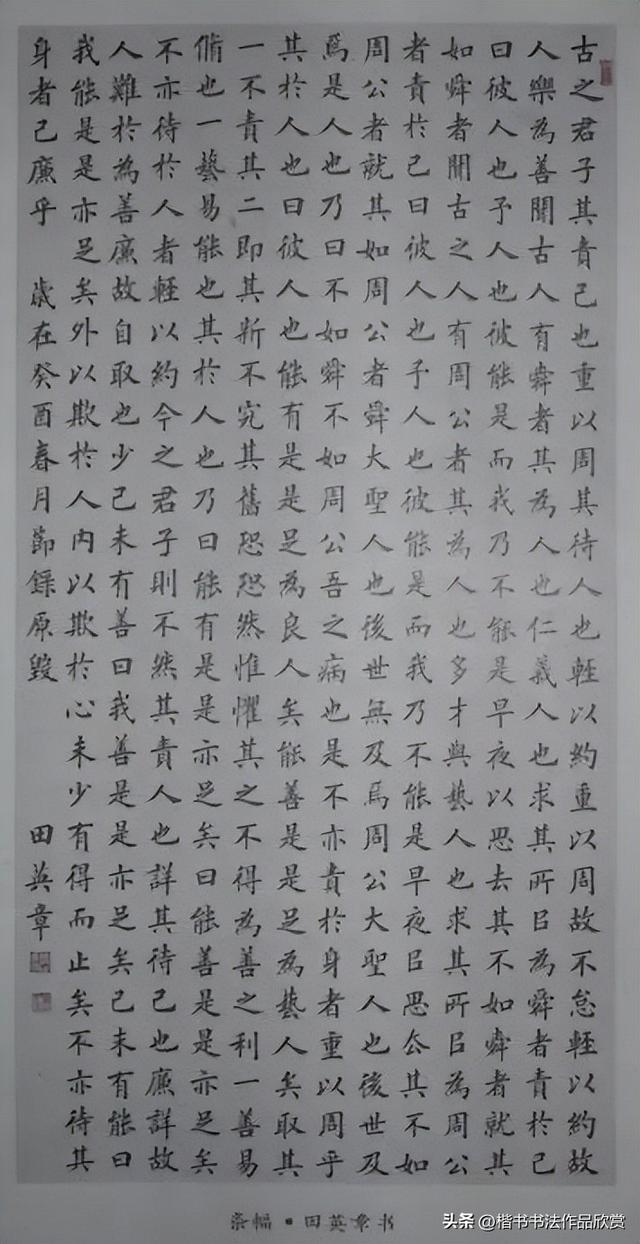 古之君子其責己也重以周其待人也輕以約重以周故不怠輕以約故
人樂為善聞古人有舜者其為人也仁義人也求其所㠯為舜者責於己
曰彼人也予人也彼能是而我乃不能是早夜以思去其不如舜者就其
如舜者聞古之人有周公者其為人也多才與藝人也求其所㠯為周公
者責於己曰彼人也予人也彼能是而我乃不能是早夜㠯思厺其不如
周公者就其如周公者舜大聖人也後世無及焉周公大聖人也後世及
焉是人也乃曰不如舜不如周公吾之病也是不亦責於身者重以周乎
其於人也曰彼人也能有是是足為良人矣能善是是足為藝人矣取其
一不責其二即其新不究其舊恐恐然惟懼其之不得為善之利一善易
脩也一藝易能也其於人也乃曰能有是是亦足矣曰能善是是亦足矣
不亦待於人者輕以約今之君子則不然其責人也詳其待己也廉詳故
人難於為善廉故自取也少己未有善曰我善是是亦足矣己未有能曰
我能是是亦足矣外以欺於人內以欺於心未少有得而止矣不亦待其
身者已廉乎 歲在癸酉春月節錄原毀 田英章
条幅·田英章书
头条 @楷书书法作品欣赏